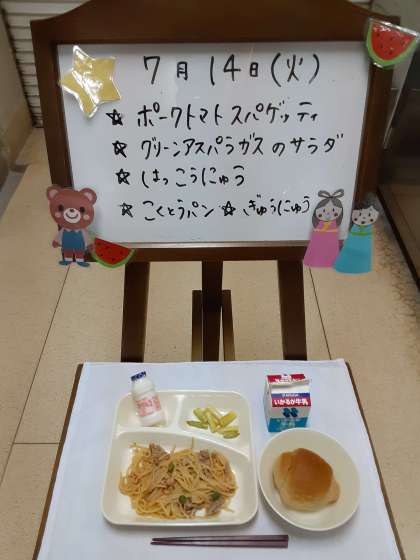 7月14日(火)
☆ ポークトマトスパゲッティ
☆ グリーンアスパラガスのサラダ
☆ はっこうにゅう
☆ こくとうパン ☆ ぎゅうにゅう
いかるが牛乳